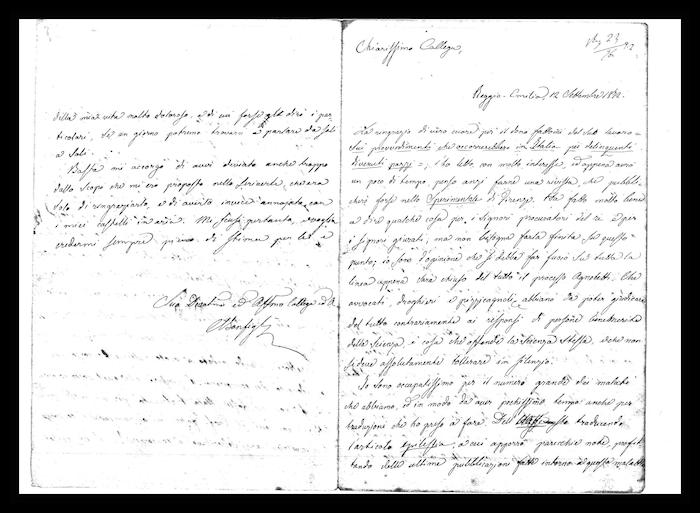 Chiarissimo Collega,
Reggio-Emilia, 12 Settembre 1882.
La ringrazio di vero cuore per il dono fattomi del suo lavoro =
Sui provvedimenti che occorrerebbero in Italia pei delinquenti
divenuti pazzi =, l'ho letto con molto interesse, ed appena avrò
un poco di tempo, penso anzi farne una rivista, che pubbli-
cherò forse nello Sperimentale di Firenze. Ha fatto molto bene
a dire qualche cosa per i signori procuratori del re e per
i signori giurati, ma non bisogna farla finita su questo
punto; io sono d'opinione che si debba far fuoco su tutta la
linea appena sarà chiuso del tutto il processo Agnoletti. Che
avvocati, droghieri e pizzicagnoli abbiano da poter giudicare
del tutto contrariamente ai responsi di persone benemerite
della scienza, è cosa che offende la scienza stessa, e che non
si deve assolutamente tollerare in silenzio.
Io sono occupatissimo per il numero grande dei malati
che abbiamo, ed in modo da aver pochissimo tempo anche per
traduzioni che ho preso a fare. Dell' sto traducendo
l'articolo epilessia, a cui apporrò parecchie note, profit-
tando delle ultime pubblicazioni fatte intorno a questa malattia
della mia vita molto dolorosa, e di cui forse gli dirò i par-
ticolari, se un giorno potremo trovarci a parlare da soli
a soli.
Basta mi accorgo di aver deviato anche troppo
dallo scopo che mi ero proposto nello scriverle, ch'era
solo di ringraziarla, e di averlo invece annojato con
i miei castelli in aria. Mi scusi pertanto, e voglia
credermi sempre pieno di stima per lei e
Suo Devotissimo ed Affmo Collega ed A.
Bonfigli